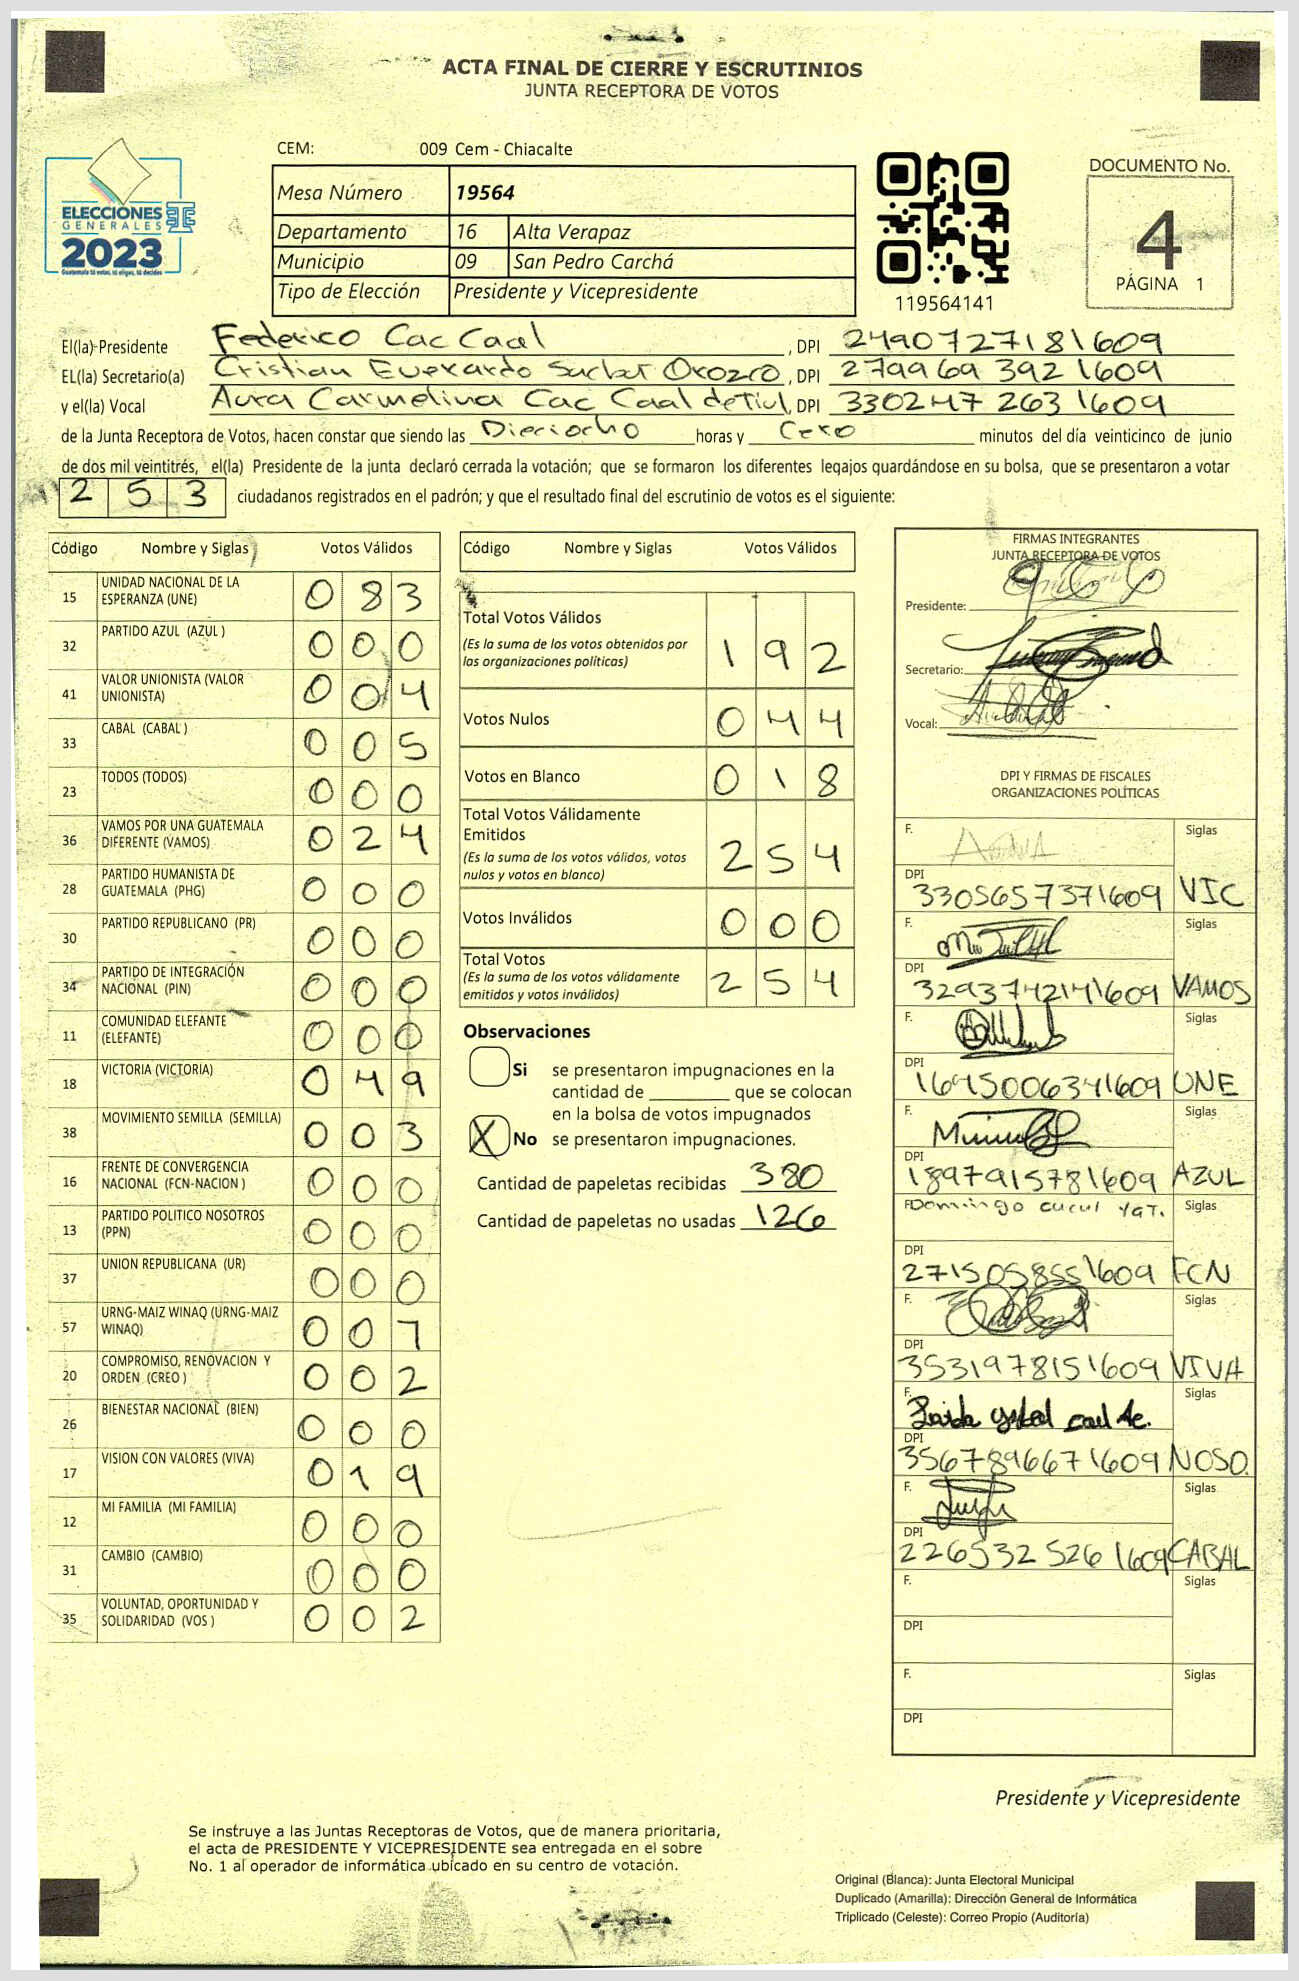 ACTA FINAL DE CIERRE Y ESCRUTINIOS
JUNTA RECEPTORA DE VOTOS
ELECCIONES
GENERALES
2023
Guatemala tú votas, tú eliges, tú decides
CEM: 009 Cem - Chiacalte
Mesa Número 19564
Departamento 16 Alta Verapaz
Municipio 09 San Pedro Carchá
Tipo de Elección Presidente y Vicepresidente
119564141
DOCUMENTO No.
4
PÁGINA 1
El(la) Presidente Federico Cac Caal, DPI 2490727181609
EL(la) Secretario(a) Cristian Everardo Orozco, DPI 2799693921609
y el(la) Vocal Aura Carmelina Cac Caal de Tiul, DPI 3302472631609
de la Junta Receptora de Votos, hacen constar que siendo las Dieciocho horas y Cero minutos del día veinticinco de junio
de dos mil veintitrés, el(la) Presidente de la junta declaró cerrada la votación; que se formaron los diferentes legajos guardándose en su bolsa, que se presentaron a votar
253 ciudadanos registrados en el padrón; y que el resultado final del escrutinio de votos es el siguiente:
Código Nombre y Siglas Votos Válidos
15 UNIDAD NACIONAL DE LA ESPERANZA (UNE) 083
32 PARTIDO AZUL (AZUL ) 000
41 VALOR UNIONISTA (VALOR UNIONISTA) 004
33 CABAL (CABAL ) 005
23 TODOS (TODOS) 000
36 VAMOS POR UNA GUATEMALA DIFERENTE (VAMOS) 024
28 PARTIDO HUMANISTA DE GUATEMALA (PHG) 000
30 PARTIDO REPUBLICANO (PR) 000
34 PARTIDO DE INTEGRACIÓN NACIONAL (PIN) 000
11 COMUNIDAD ELEFANTE (ELEFANTE) 000
18 VICTORIA (VICTORIA) 049
38 MOVIMIENTO SEMILLA (SEMILLA) 003
16 FRENTE DE CONVERGENCIA NACIONAL (FCN-NACION ) 000
13 PARTIDO POLITICO NOSOTROS (PPN) 000
37 UNION REPUBLICANA (UR) 000
57 URNG-MAIZ WINAQ (URNG-MAIZ WINAQ) 001
20 COMPROMISO, RENOVACION Y ORDEN (CREO ) 002
26 BIENESTAR NACIONAL (BIEN) 000
17 VISION CON VALORES (VIVA) 019
12 MI FAMILIA (MI FAMILIA) 000
31 CAMBIO (CAMBIO) 000
35 VOLUNTAD, OPORTUNIDAD Y SOLIDARIDAD (VOS ) 002
Código Nombre y Siglas Votos Válidos
Total Votos Válidos
(Es la suma de los votos obtenidos por
las organizaciones políticas) 192
Votos Nulos 044
Votos en Blanco 018
Total Votos Válidamente
Emitidos
(Es la suma de los votos válidos, votos
nulos y votos en blanco) 254
Votos Inválidos 000
Total Votos
(Es la suma de los votos válidamente
emitidos y votos inválidos) 254
Observaciones
Si se presentaron impugnaciones en la
cantidad de ________ que se colocan
en la bolsa de votos impugnados
X No se presentaron impugnaciones.
Cantidad de papeletas recibidas 380
Cantidad de papeletas no usadas 126
FIRMAS INTEGRANTES
JUNTA RECEPTORA DE VOTOS
Presidente:
Secretario:
Vocal:
DPI Y FIRMAS DE FISCALES
ORGANIZACIONES POLÍTICAS
F. Siglas
DPI 3305657371609 VIC
F. Siglas
DPI 3293742141609 VAMOS
F. Siglas
DPI 1695006341609 UNE
F. Siglas
DPI 1897915781609 AZUL
F. Domingo cucul Yat. Siglas
DPI 2715058551609 FCN
F. Siglas
DPI 3531978151609 VIVA
F. Siglas
DPI 3567896671609 NOSO.
F. Siglas
DPI 2265325261609 CABAL
F. Siglas
DPI
F. Siglas
DPI
Presidente y Vicepresidente
Se instruye a las Juntas Receptoras de Votos, que de manera prioritaria,
el acta de PRESIDENTE Y VICEPRESIDENTE sea entregada en el sobre
No. 1 al operador de informática ubicado en su centro de votación.
Original (Blanca): Junta Electoral Municipal
Duplicado (Amarilla): Dirección General de Informática
Triplicado (Celeste): Correo Propio (Auditoría)